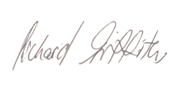 Richard Griffiths